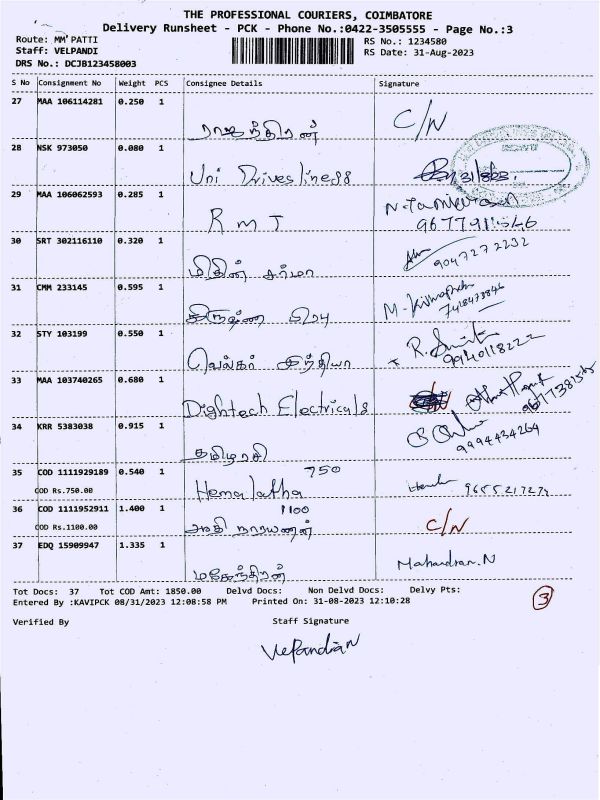 THE PROFESSIONAL COURIERS, COIMBATORE
Delivery Runsheet - PCK - Phone No.:0422-3505555 - Page No.:3
Route: MM PATTI
RS No.: 1234580
Staff: VELPANDI
RS Date: 31-Aug-2023
DRS No.: DCJB123458003
S No Consignment No Weight PCS Consignee Details Signature
27 MAA 106114281 0.250 1 ராஜேந்திரன் C/N
28 NSK 973050 0.080 1 Uni Drivesliness 31/8/23
29 MAA 106062593 0.285 1 R M T 9677911546
30 SRT 302116110 0.320 1 மிதின் சர்மா 9047272232
31 CMM 233145 0.595 1 கிருஷ்ண M. 7418473846
32 STY 103199 0.550 1 வெங்கர் இந்தியா R. 9940118222
33 MAA 103740265 0.680 1 Dightech Electricals C/N
34 KRR 5383038 0.915 1 தமிழரசி 9994434264
35 COD 1111929189 0.540 1 Hemalatha 750 9655217279
COD Rs.750.00
36 COD 1111952911 1.400 1 1100 நாராயணன் C/N
COD Rs.1100.00
37 EDQ 15909947 1.335 1 மகேந்திரன் Mahandran.N
Tot Docs: 37 Tot COD Amt: 1850.00 Delvd Docs: Non Delvd Docs: Delvy Pts:
Entered By :KAVIPCK 08/31/2023 12:08:58 PM Printed On: 31-08-2023 12:10:28
3
Verified By Staff Signature
Velpandian